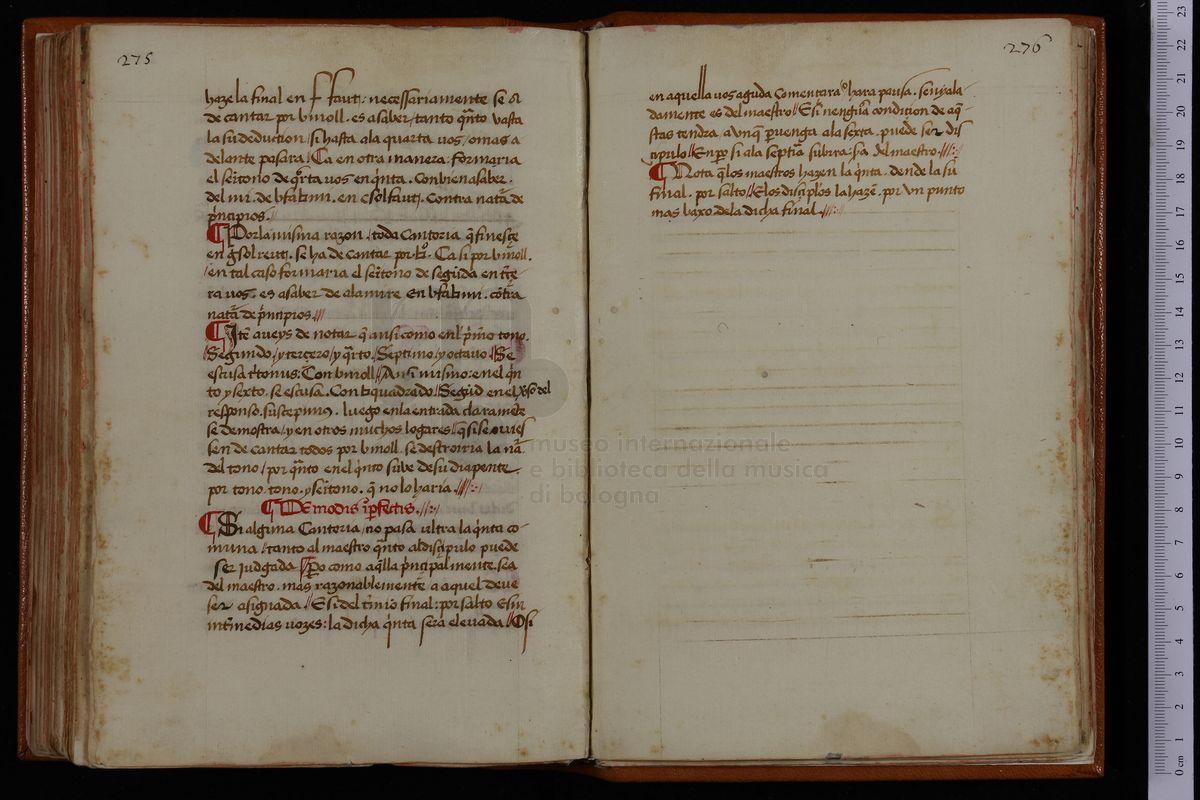 275
haze la final en f fauṭ: necessariamente se a
de cantar por bmoll. es a saber, tanto qnto basta
la su deduction / si hasta ala quarta vos, o mas a
delante pasara / Ca en otra manera formaria
el semitono de qrta vos en qnta. Con bien a saber.
del mi. de bfabmi. en csolfaut. contra natã de
principios.
¶ Por la misma razon. toda Cantoria q finesçe
en gsolreut. se ha de cantar por
en tal caso formaria el
ra vos. es a saber de alamire en bfabmi. cõtra
natã de principios ///
¶ Itẽ aueys de notar q ansi como enl primo tono.
/Segundo /y tercero /y qrto. /Septimo /y octauo. /Se
escusa tritonus: Con bmoll // Ansi mismo: en el qn
to y sexto. se escusa. Con bquadrado /Segũd en el vso del
responso. suscepimus. luego en la entrada claramẽte
se demostra /y en otros muchos logares /q si se ouies
sen de cantar todos por bmoll. se destroiria la nã
del tono / por qnto en el qnto sube de su diapente
por tono. tono. y semitono. q no lo haria.////:/
¶ De modis ĩperfectis.//:/
¶ Si alguna Cantoria, no pasa ultra la qnta co-
muna /tanto al maestro qnto al discipulo puede
ser judgada /Pero como aqlla principalmente. sea
del maestro. mas razonablemente a aquel deue
ser asignada. //E si del tmino final: por salto E sin
intmedias vozes: la dicha qnta sera eleuada //O si
276
en aquella vos aguda Comentara o hara pausa. señala-
damente es del maestro //E si nenguna condicion de aq-
stas tendra. avnq puenga ala sexta. puede ser dis
cipulo //Enpo si ala septima subira: sa del maestro.///:/
¶ Nota q los maestros hazen la qnta. dende la su
final. por salto //E los discipulos la hazẽ. por vn punto
mas baxo. dela dicha final.///:/
museo internazionale
e biblioteca della musica
di bologna
23
22
21
20
19
18
17
16
15
14
13
12
11
10
9
8
7
6
5
4
3
2
1
0 cm